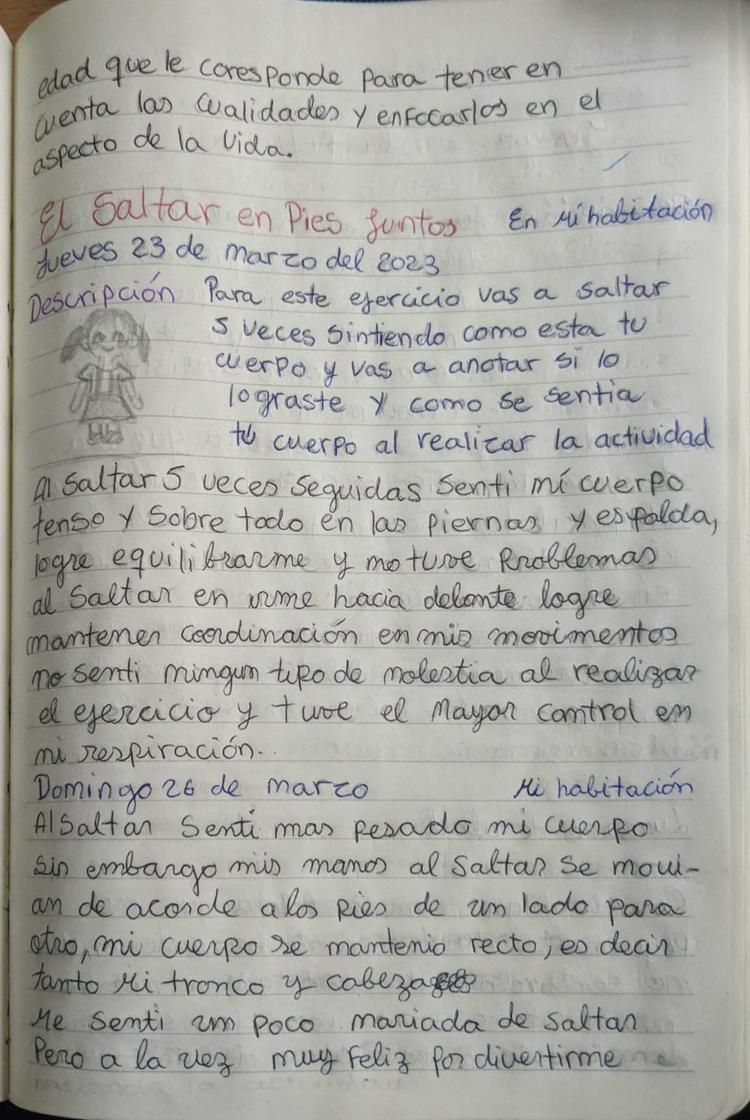 edad que le coresponde para tener en
cuenta las cualidades y enfocarlos en el
aspecto de la vida.
El Saltar en Pies Juntos En Mi habitación
Jueves 23 de marzo del 2023
Descripción Para este ejercicio vas a saltar
5 veces sintiendo como esta tu
cuerpo y vas a anotar si lo
lograste y como se sentia
tu cuerpo al realizar la actividad
Al Saltar 5 veces seguidas senti mi cuerpo
tenso y sobre todo en las piernas y espalda,
logre equilibrarme y no tuve Problemas
al Saltar en irme hacia delante logre
mantener coordinación en mis movimentos
no senti ningun tipo de molestia al realizar
el ejercicio y tuve el Mayor control en
mi respiración.
Domingo 26 de marzo Mi habitación
Al Saltar Senti mas pesado mi cuerpo
sin embargo mis manos al saltar se movi-
an de acorde a los pies de un lado para
otro, mi cuerpo se mantenio recto, es decir
tanto Mi tronco y cabeza
Me senti um poco mariada de saltar
Pero a la vez muy feliz por divertirme